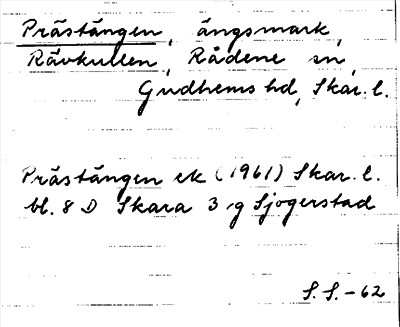 Prästängen, ängsmark,
Rävkullen, Rådene sn,
Gudhems hd, Skar. l.
Prästängen ek (1961) Skar. l.
bl. 8 D Skara 3 g Sjogerstad
S. S. - 62